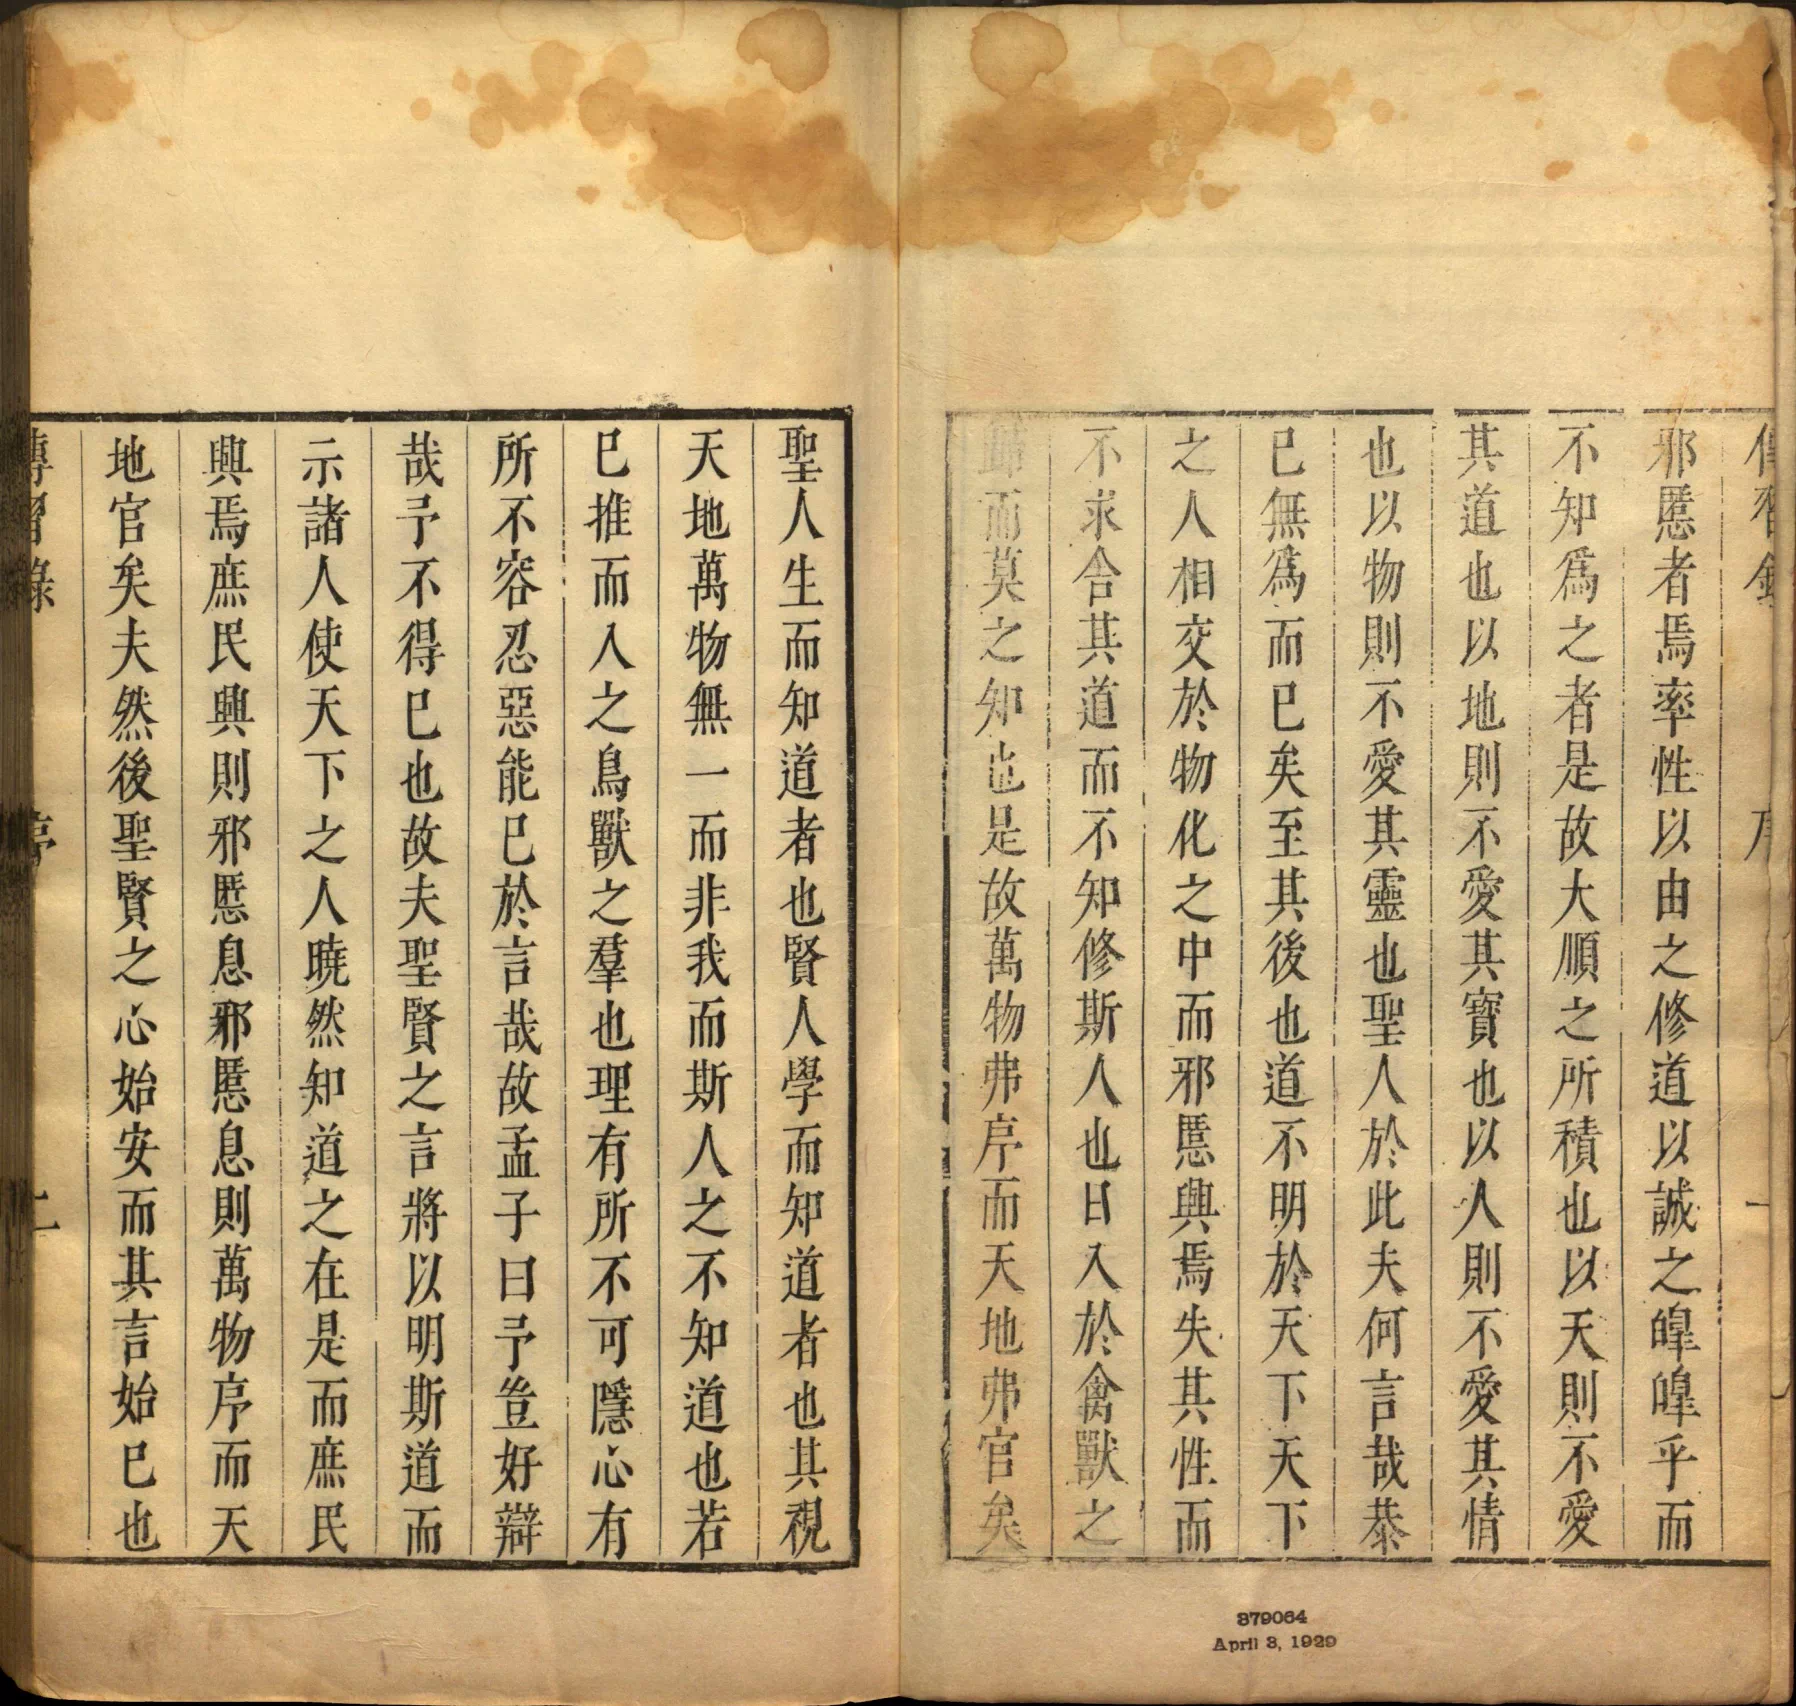 傳習錄 序 一
邪慝者焉率性以由之修道以誠之皥皥乎而
不知爲之者是故大順之所積也以天則不愛
其道也以地則不愛其寶也以人則不愛其情
也以物則不愛其靈也聖人於此夫何言哉恭
已無爲而已矣至其後也道不明於天下天下
之人相交於物化之中而邪慝興焉失其性而
不求舍其道而不知修斯人也日入於禽獸之
歸而莫之知也是故萬物弗序而天地弗官矣
聖人生而知道者也賢人學而知道者也其視
天地萬物無一而非我而斯人之不知道也若
已推而入之鳥獸之羣也理有所不可隱心有
所不容忍惡能已於言哉故孟子曰予豈好辯
哉予不得已也故夫聖賢之言將以明斯道而
示諸人使天下之人曉然知道之在是而庶民
興焉庶民興則邪慝息邪慝息則萬物序而天
地官矣夫然後聖賢之心始安而其言始已也
傳習錄 序 二
379064
April 3, 1929